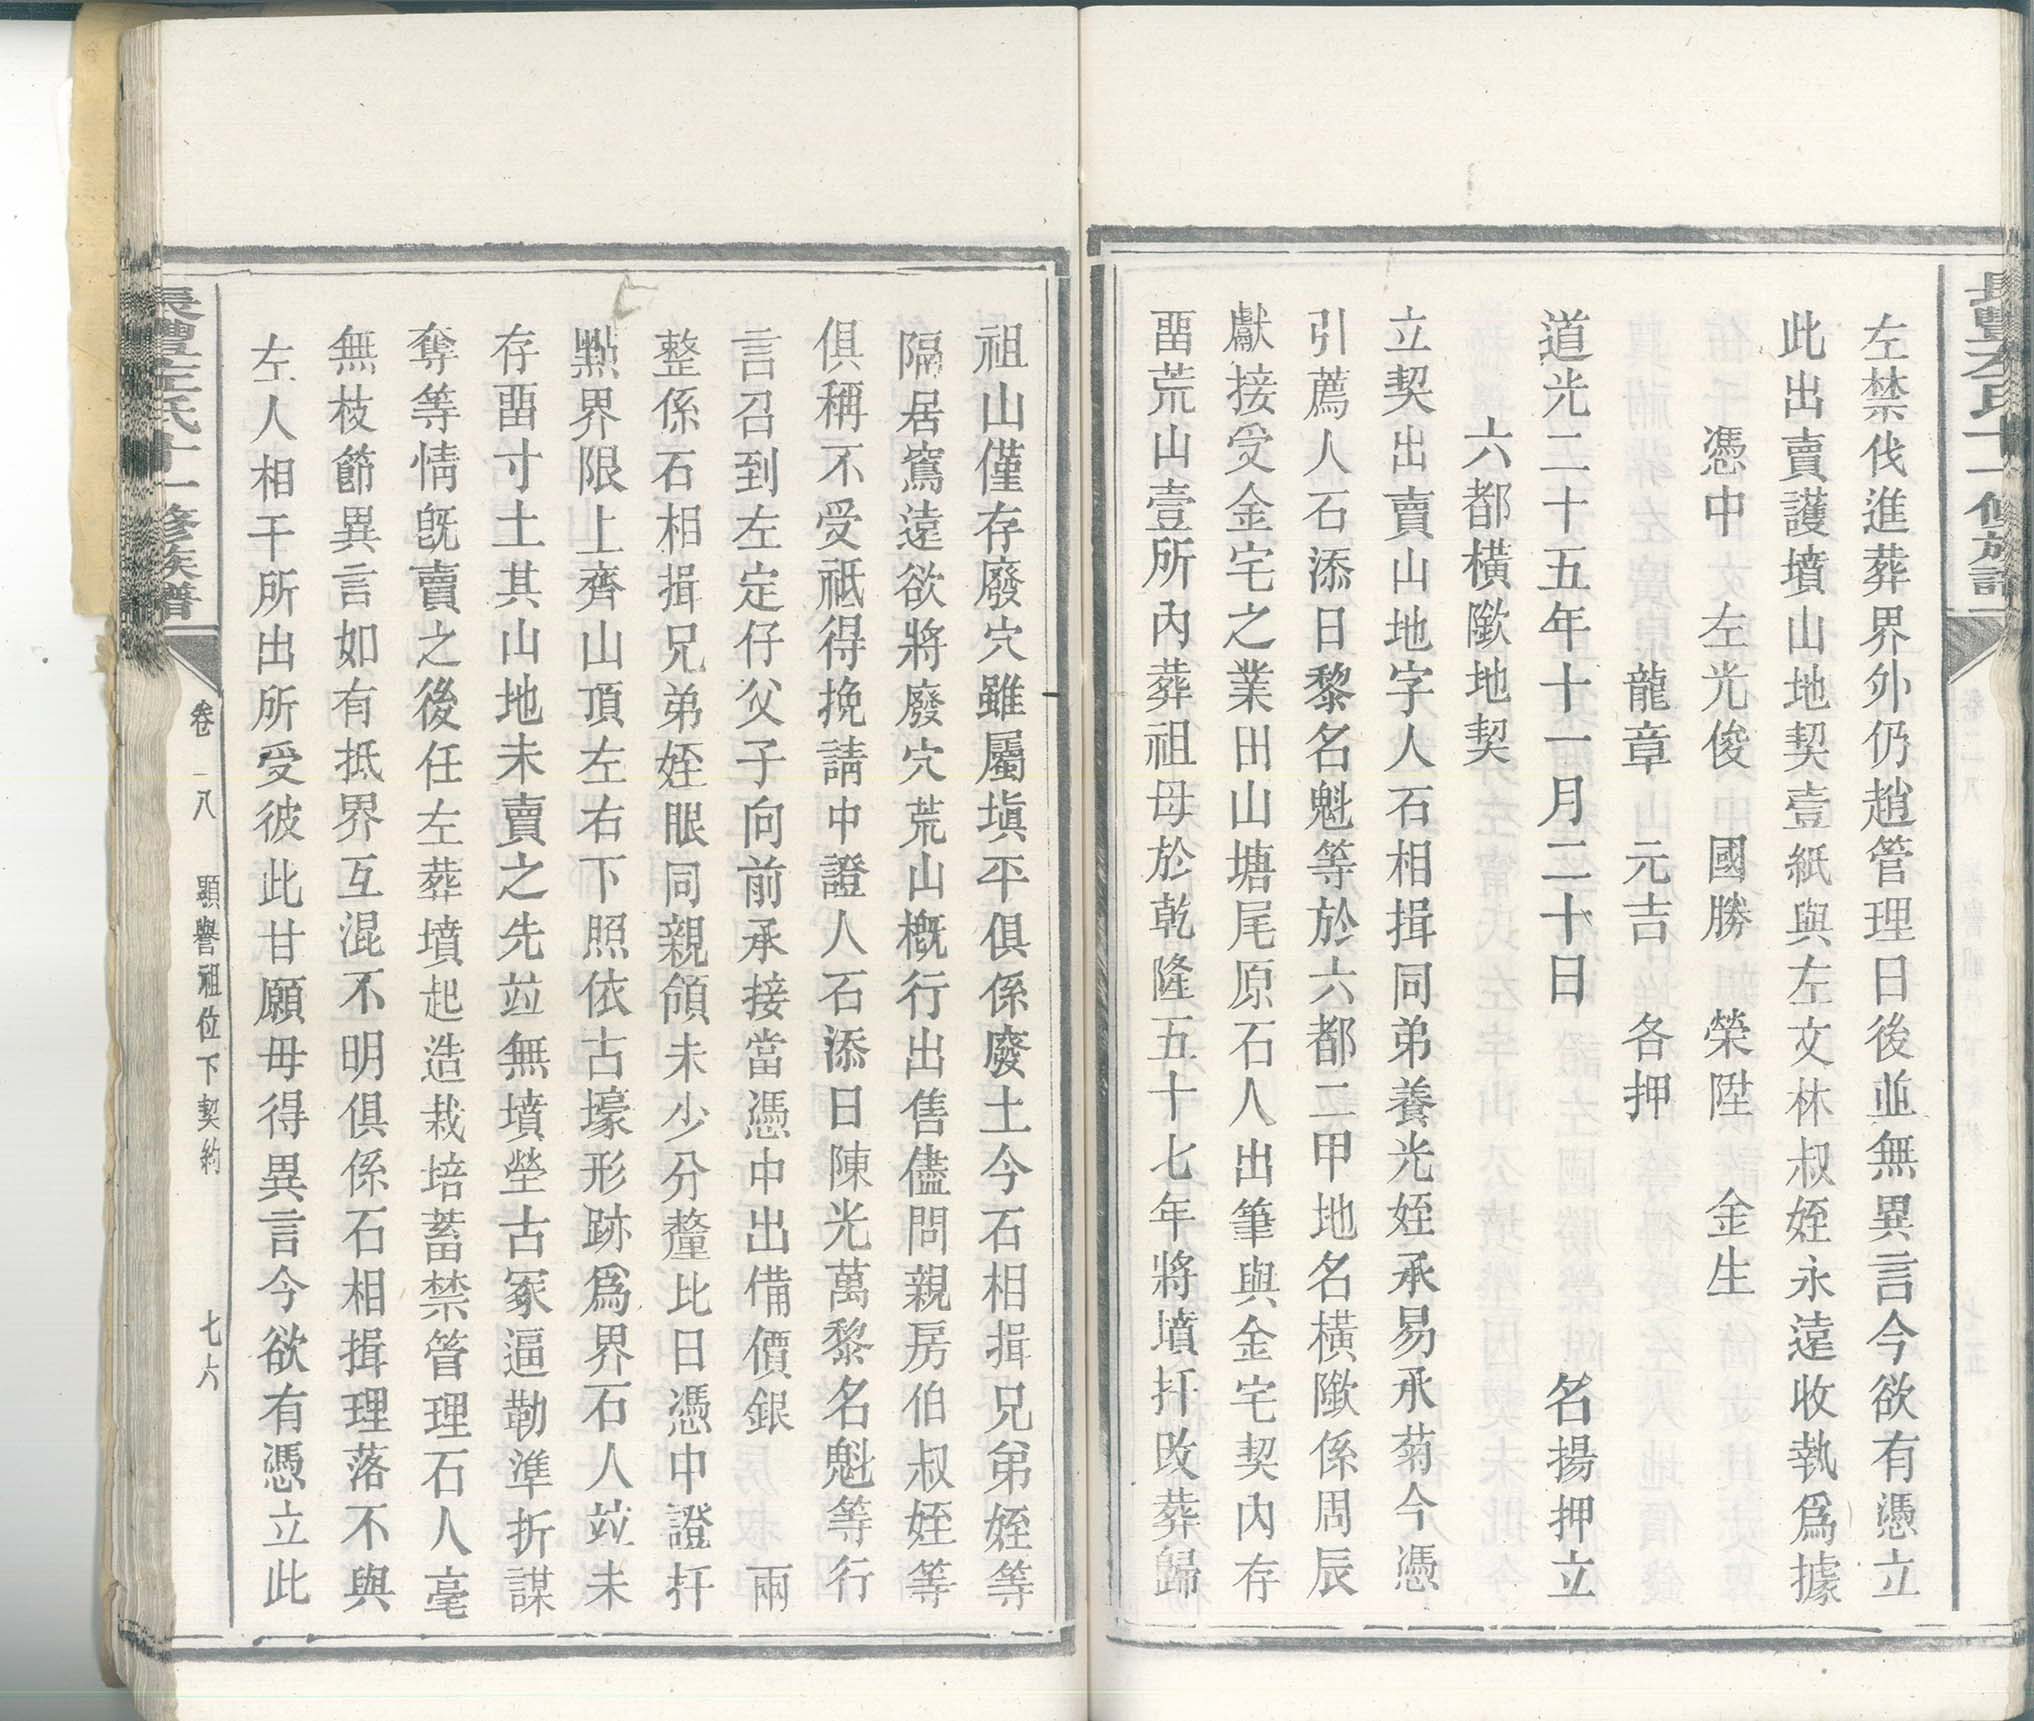 長豐左氏十一修族譜
左禁伐進葬界外仍趙管理日後並無異言今欲有憑立
此出賣護墳山地契壹紙與左文林叔姪永遠收執爲據
憑中　左光俊　國勝　榮陞　金生
龍章　元吉　各押
道光二十五年十一月二十日　名揚押立
六都橫歟地契
立契出賣山地字人石相揖同弟養光姪承易承菊今憑
引薦人石添日黎名魁等於六都二甲地名橫歟係周辰
獻接受金宅之業田山塘尾原石人出筆與金宅契內存
畱荒山壹所內葬祖母於乾隆五十七年將墳扦改葬歸
祖山僅存廢穴雖屬塡平俱係廢土今石相揖兄弟姪等
隔居窵遠欲將廢穴荒山概行出售儘問親房伯叔姪等
俱稱不受祗得挽請中證人石添日陳光萬黎名魁等行
言召到左定仔父子向前承接當憑中出備價銀　兩
整係石相揖兄弟姪眼同親領未少分釐比日憑中證扦
點界限上齊山頂左右下照依古壕形跡爲界石人竝未
存畱寸土其山地未賣之先竝無墳塋古冢逼勒準折謀
奪等情旣賣之後任左葬墳起造栽培蓄禁管理石人毫
無枝節異言如有抵界互混不明俱係石相揖理落不與
左人相干所出所受彼此甘願毋得異言今欲有憑立此
長豐左氏十一修族譜
卷一八　顯譽祖位下契約　七六